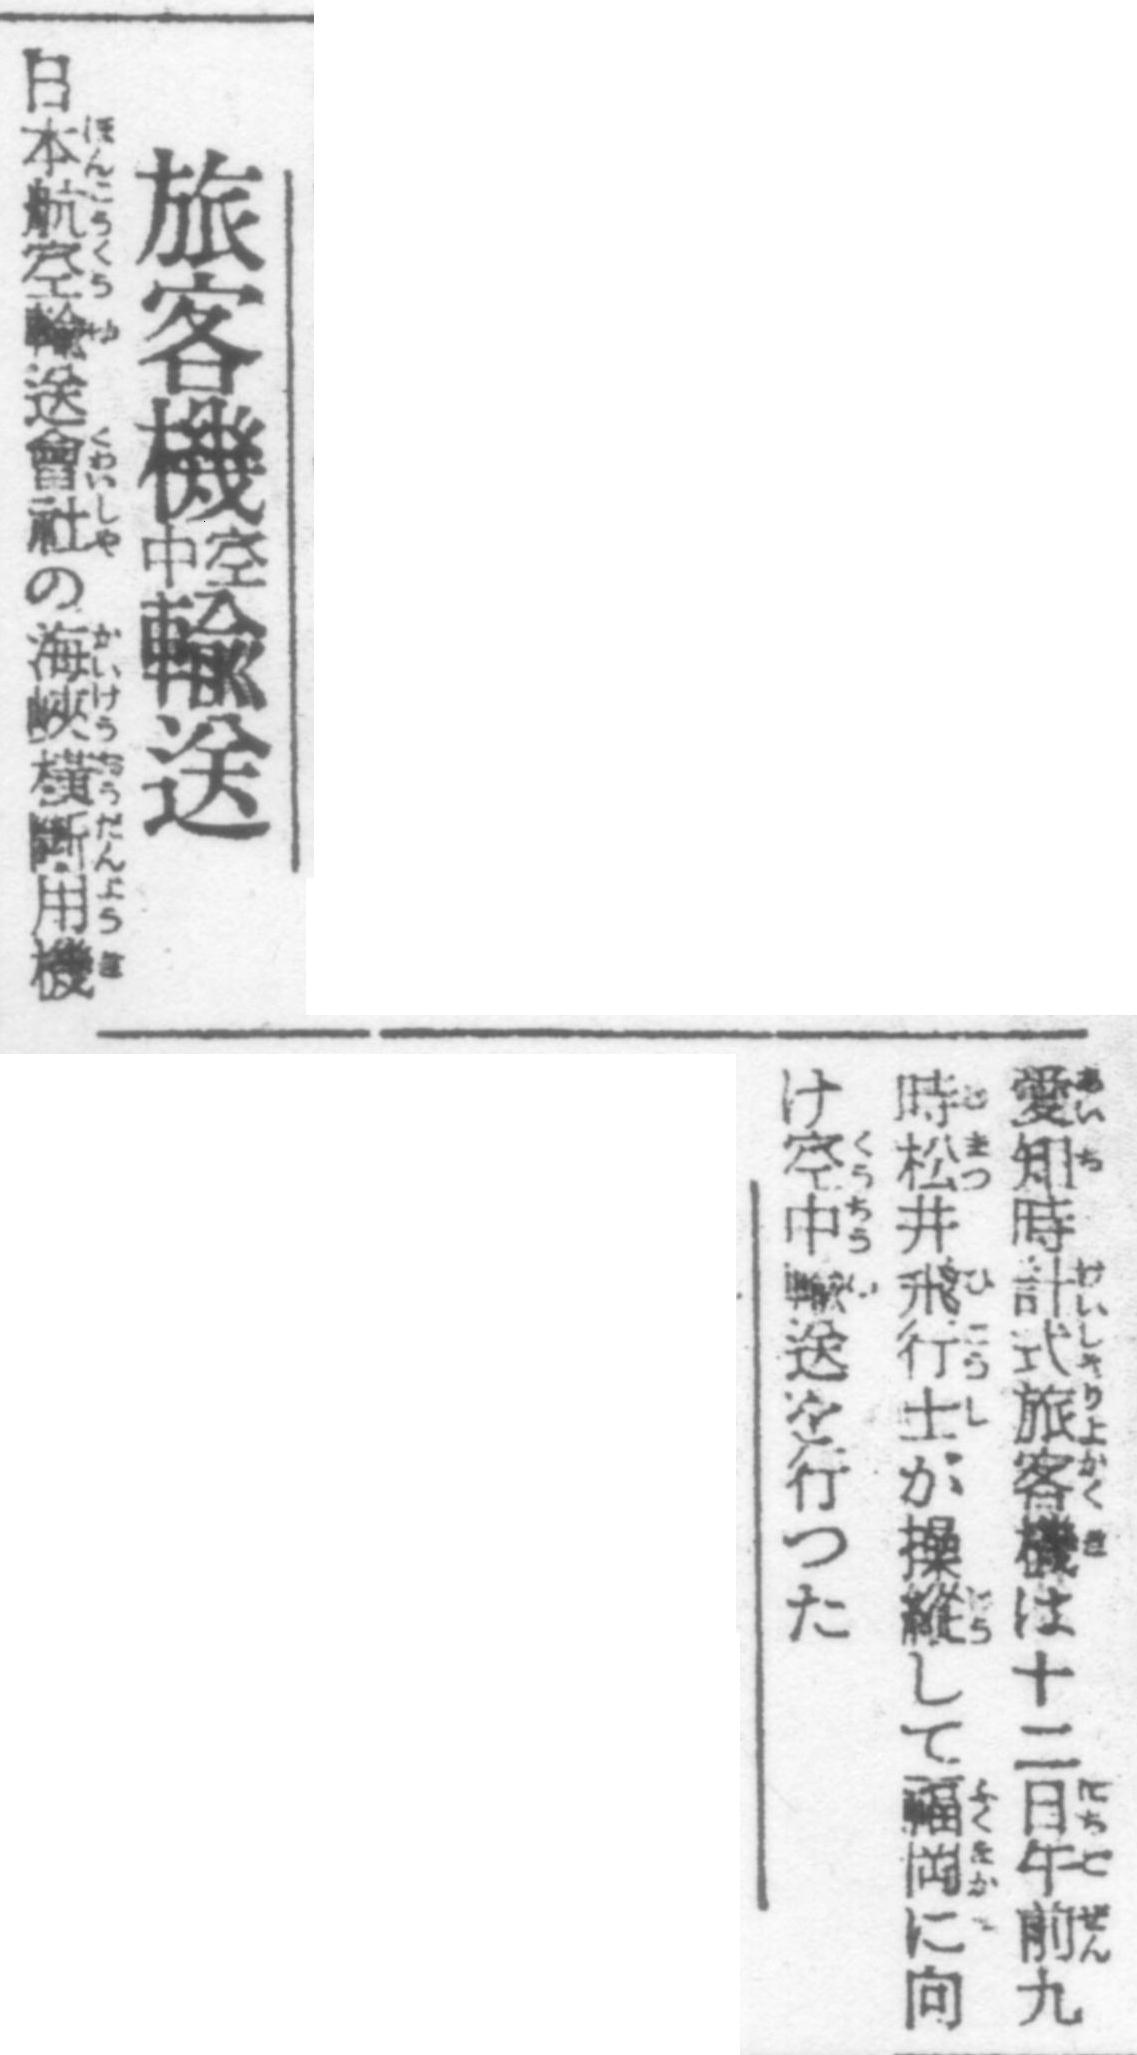 旅客機空中輸送
日本航空輸送會社の海峽橫斷用機
愛知時計式旅客機は十二日午前九
時松井飛行士が操縱して福岡に向
け空中輸送を行つた